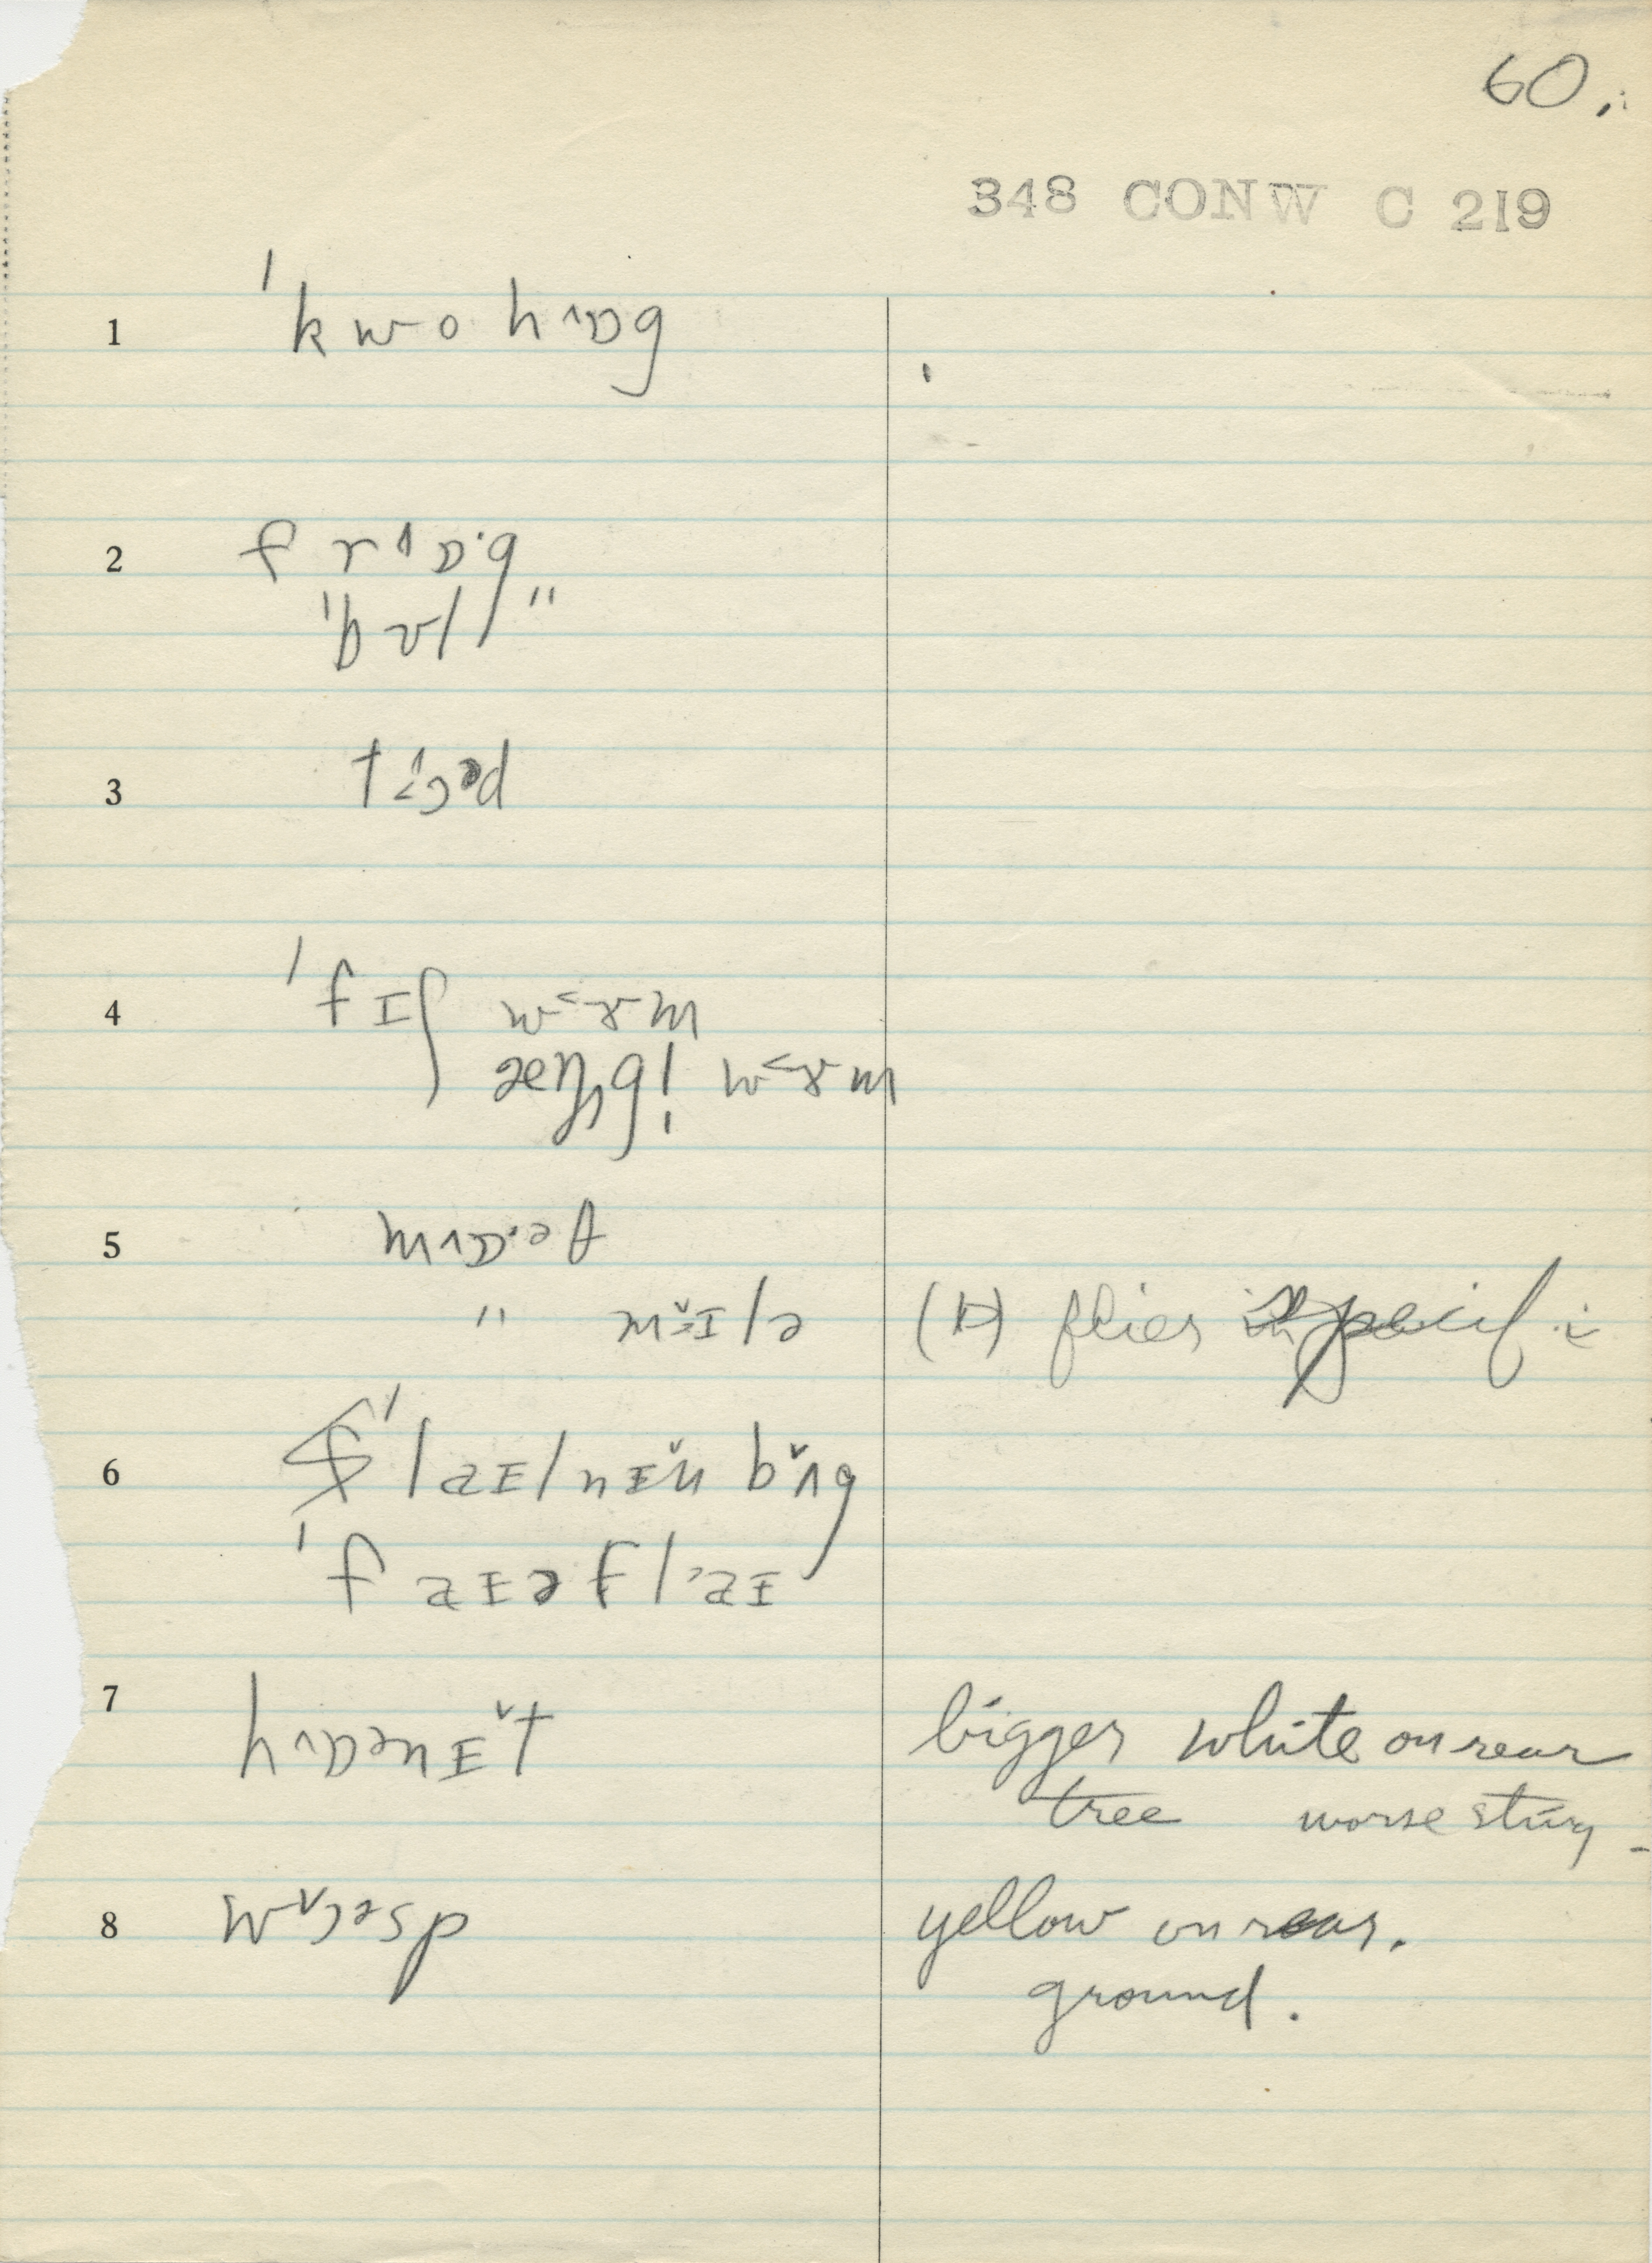 60.
348 CONW C 219
1 ˈkwohɒ˄g
2 frɒ˄·g
ˈbʊl "
3 tɔəd
4 ˈfɪʃ wɜ˂m
æŋgl̩ wɜ˂m
5 mɒ˄·əθ
" mɪlə (H) flies in
6 ˈlaɪtnɪn bʌ̌g
ˈfaɪəflaɪ
7 hɒ˄ənɪ̌t bigger white on rear
tree worse sting
8 wɔ̌əsp yellow on rear.
ground.